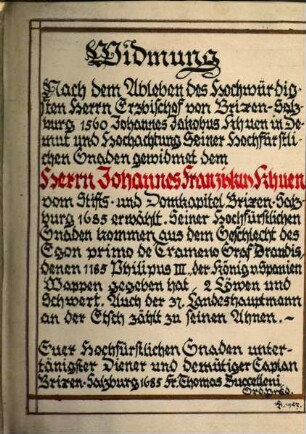 Widmung
Nach dem Ableben des Hochwürdig-
sten Herrn Erzbischof von Brixen-Salz-
burg 1560 Johannes Jakobus Khuen in De-
mut und Hochachtung Seiner Hochfürstli-
chen Gnaden gewidmet dem
Herrn Johannes Franziskus Khuen
vom Stifts- und Domkapitel Brixen-Salz-
burg 1685 erwählt. Seiner Hochfürstlichen
Gnaden kommen aus dem Geschlecht des
Egon primo de Trameno Graf Brandis,
denen 1185 Philipus III, der König v Spanien
Wappen gegeben hat, 2 Löwen und
Schwert. Auch der 37. Landeshauptmann
an der Etsch zählt zu seinen Ahnen. –
Euer Hochfürstlichen Gnaden unter-
tänigster Diener und demütiger Caplan
Brixen-Salzburg 1685 Fr. Thomas Buccelleni
1963.